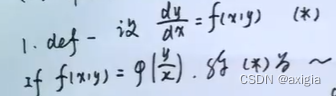 1. def - 设 dy/dx = f(x,y) (*)
If f(x,y) = φ(y/x). 则 (*) 为 ~
CSDN @axigia